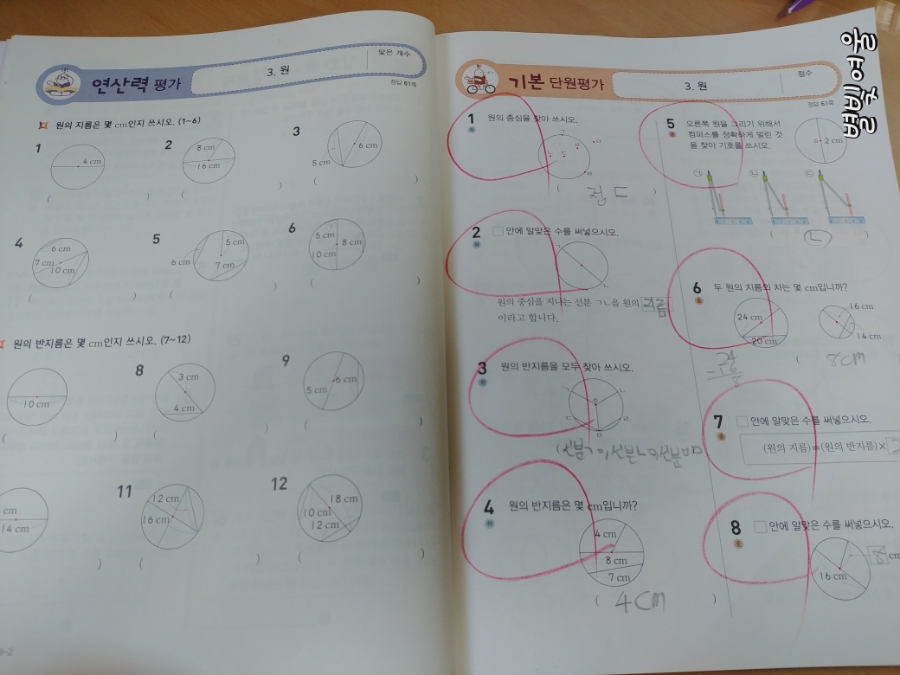 연산력 평가
3. 원
맞은 개수
정답 61쪽
원의 지름은 몇 cm인지 쓰시오. (1~6)
1
4 cm
( )
2
8 cm
16 cm
( )
3
5 cm
6 cm
( )
4
6 cm
7 cm
10 cm
( )
5
6 cm
5 cm
7 cm
( )
6
5 cm
8 cm
10 cm
( )
원의 반지름은 몇 cm인지 쓰시오. (7~12)
10 cm
( )
8
3 cm
4 cm
( )
9
5 cm
6 cm
( )
cm
14 cm
)
11
12 cm
16 cm
( )
12
18 cm
10 cm
12 cm
( )
기본 단원평가
3. 원
점수
정답 61쪽
1 원의 중심을 찾아 쓰시오.
( 점 ㄷ )
2 □ 안에 알맞은 수를 써넣으시오.
원의 중심을 지나는 선분 ㄱㄴ을 원의 지름
이라고 합니다.
3 원의 반지름을 모두 찾아 쓰시오.
4 원의 반지름은 몇 cm입니까?
4 cm
8 cm
7 cm
( 4cm )
5 오른쪽 원을 그리기 위해서
컴퍼스를 정확하게 벌린 것
을 찾아 기호를 쓰시오.
2 cm
㉠ ㉡ ㉢
( ㉡ )
6 두 원의 지름의 차는 몇 cm입니까?
24 cm
20 cm
16 cm
14 cm
24
-16
8
( 8cm
7 □ 안에 알맞은 수를 써넣으시오.
(원의 지름)=(원의 반지름)×
8 □ 안에 알맞은 수를 써넣으시오.
8 cm
16 cm